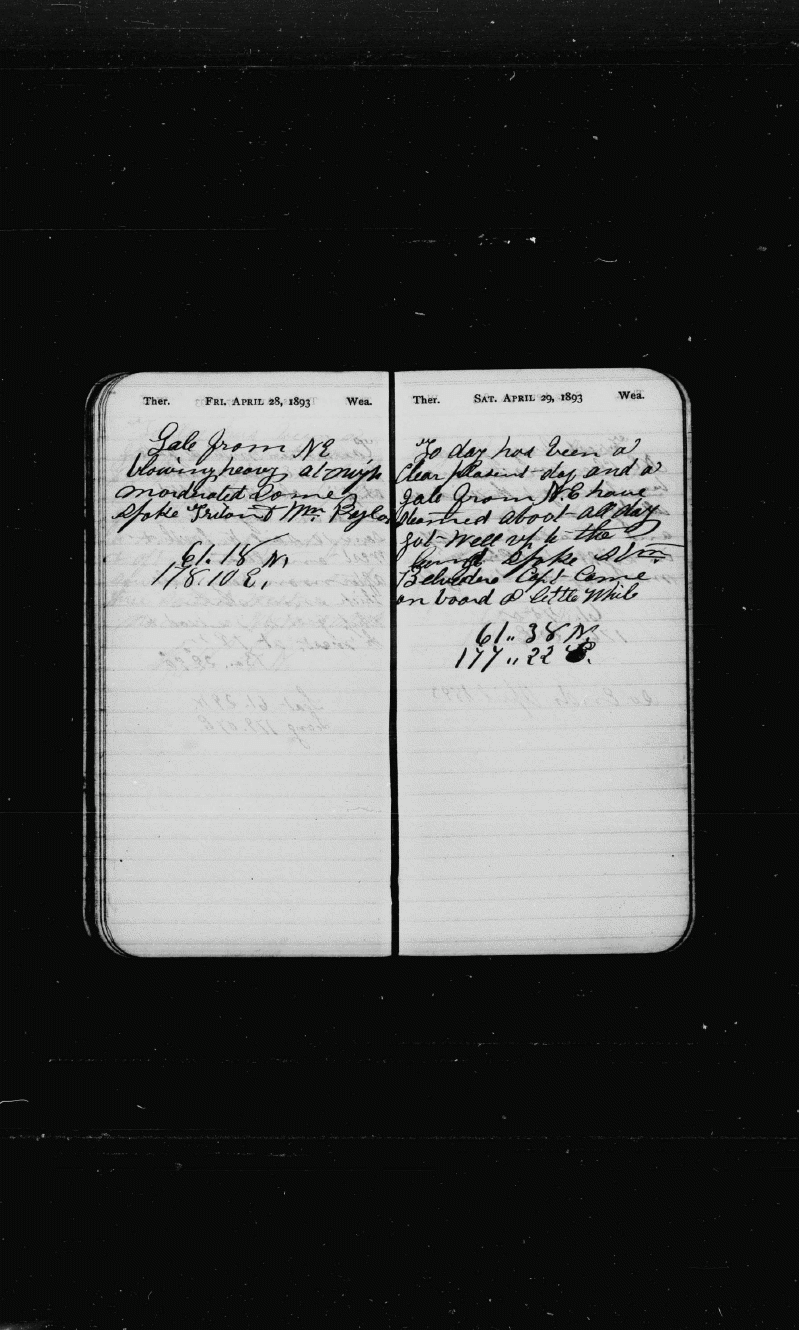 Ther. FRI. APRIL 28, 1893 Wea.
Gale from NE
blowing heavy at nigh
mordrated Some
Spoke Triton & Wm Bayles
61.18 N,
178.10 E,
Ther. SAT. APRIL 29, 1893 Wea.
To day has been a
Clear plasent day and a
gale from N.E have
steamed about all day
got Well up to the
land Spoke Stm
Belvedere Capt Came
on board a little While
61,, 38 N.
177,, 22 E.